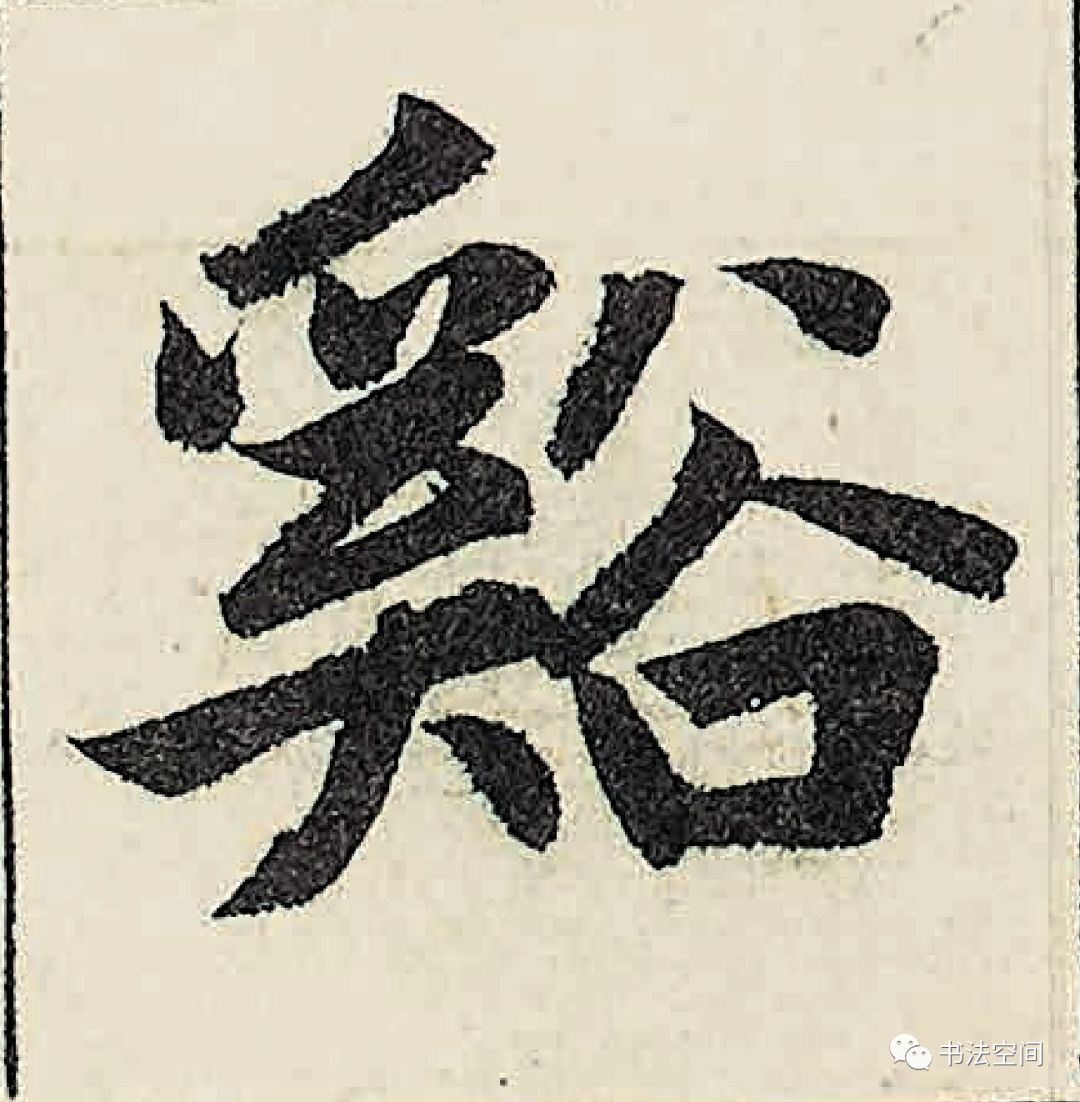 谿
书法空间